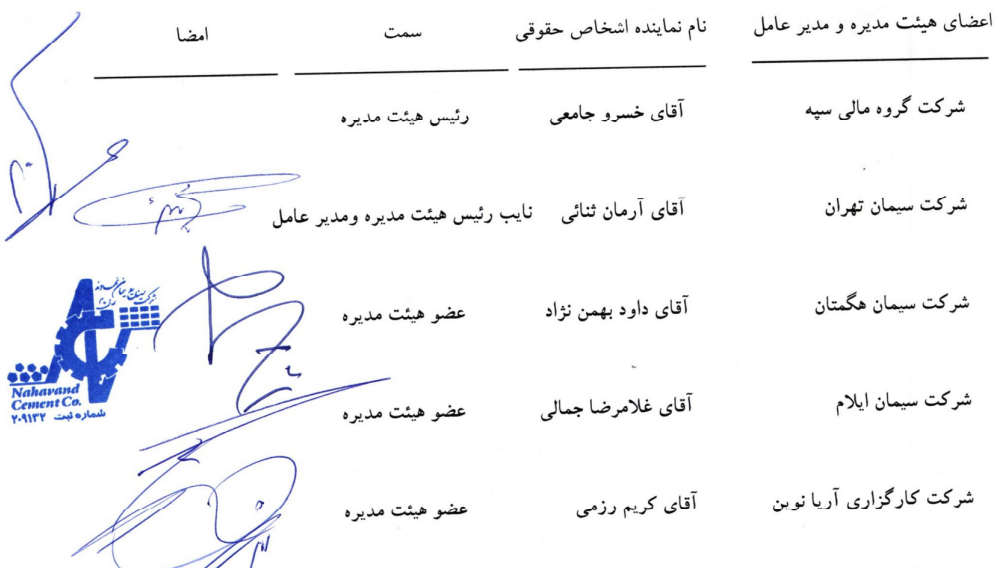 اعضای هیئت مدیره و مدیر عامل نام نماینده اشخاص حقوقی سمت امضا
شرکت گروه مالی سپه آقای خسرو جامعی رئیس هیئت مدیره
شرکت سیمان تهران آقای آرمان ثنائی نایب رئیس هیئت مدیره ومدیر عامل
شرکت سیمان هگمتان آقای داود بهمن نژاد عضو هیئت مدیره
شرکت سیمان ایلام آقای غلامرضا جمالی عضو هیئت مدیره
شرکت کارگزاری آریا نوین آقای کریم رزمی عضو هیئت مدیره
Nahavand
Cement Co.
شماره ثبت ۲۰۹۱۳۲